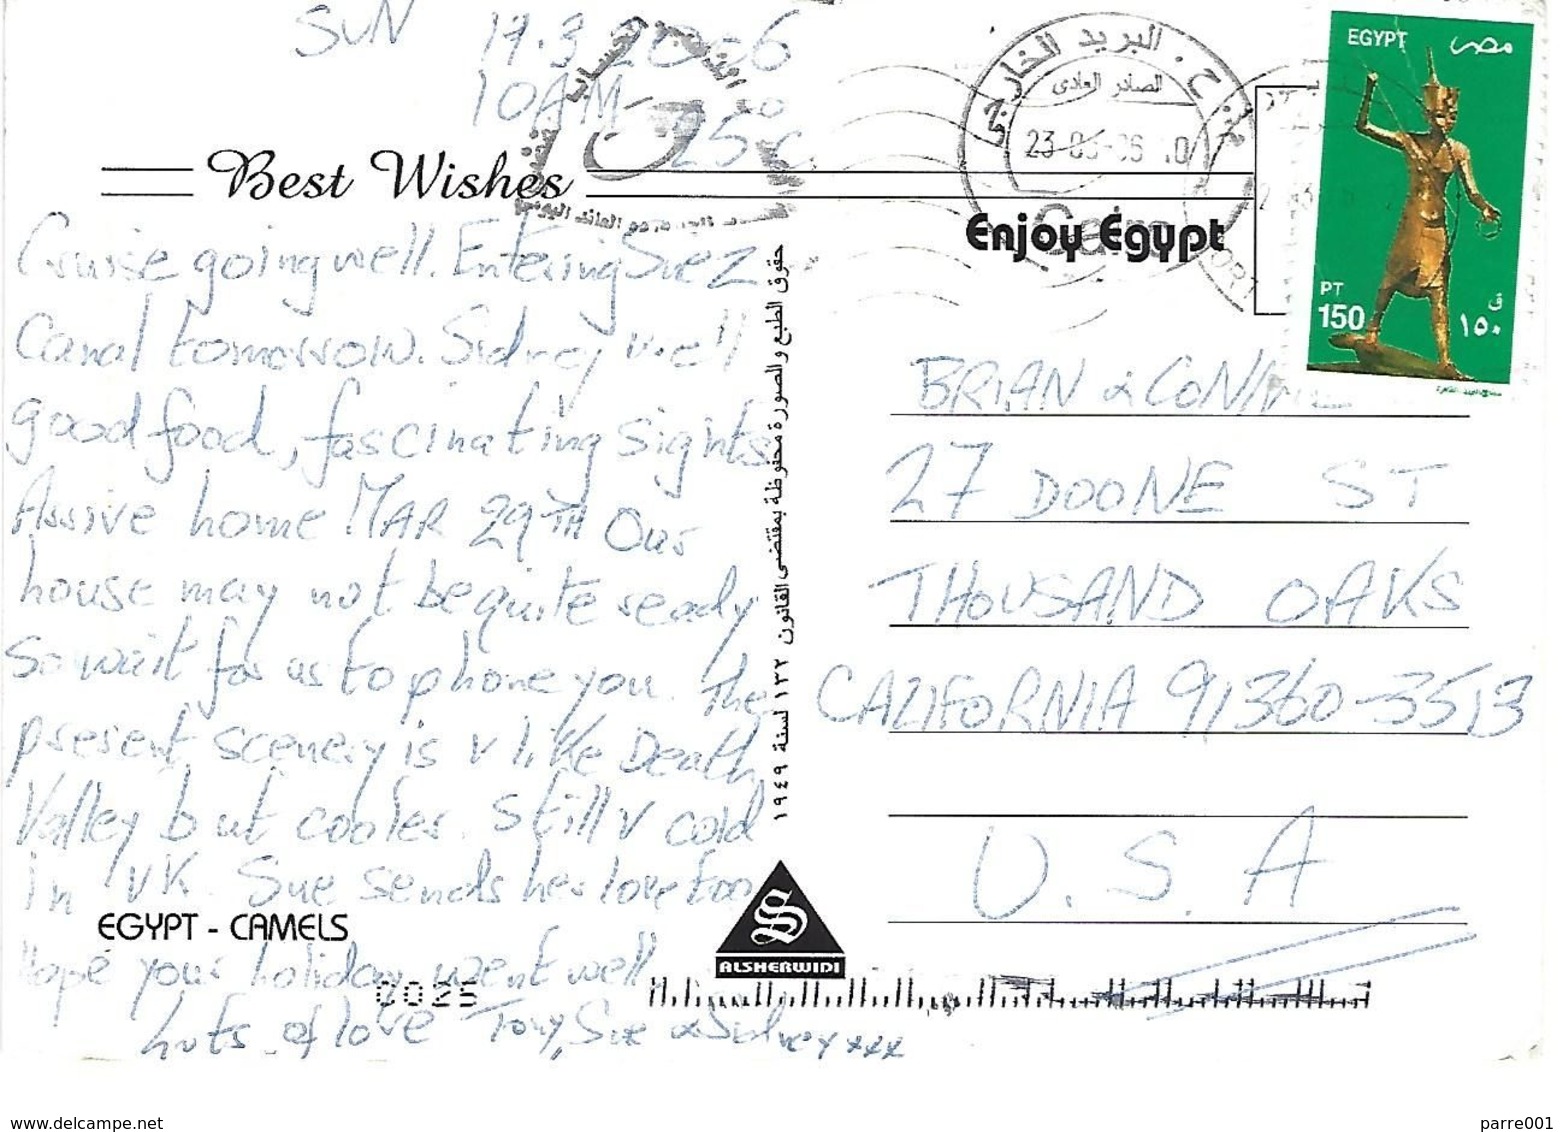 SUN 17.3.2006
10AM
25°C
Best Wishes
Cruise going well. Entering Suez
Canal tomorrow. Sidney well
good food, fascinating sights
Arrive home MAR 29TH Our
house may not be quite ready
So wait for us to phone you. The
present scenery is v like Death
Valley but cooler. Still v cold
in UK. Sue sends her love too
EGYPT - CAMELS
Hope your holiday went well
Lots of love Tony, Sue & Sidney xxx
0025
حقوق الطبع والصورة محفوظة بمقتضى القانون ١٣٢ لسنة ١٩٤٩
ALSHERWIDI
البريد الخارجي
الصادر العادى
Cairo
Enjoy Egypt
EGYPT مصر
PT
150
١٥٠
BRIAN & CONNIE
27 DOONE ST
THOUSAND OAKS
CALIFORNIA 91360-3513
U.S.A
www.delcampe.net
parre001